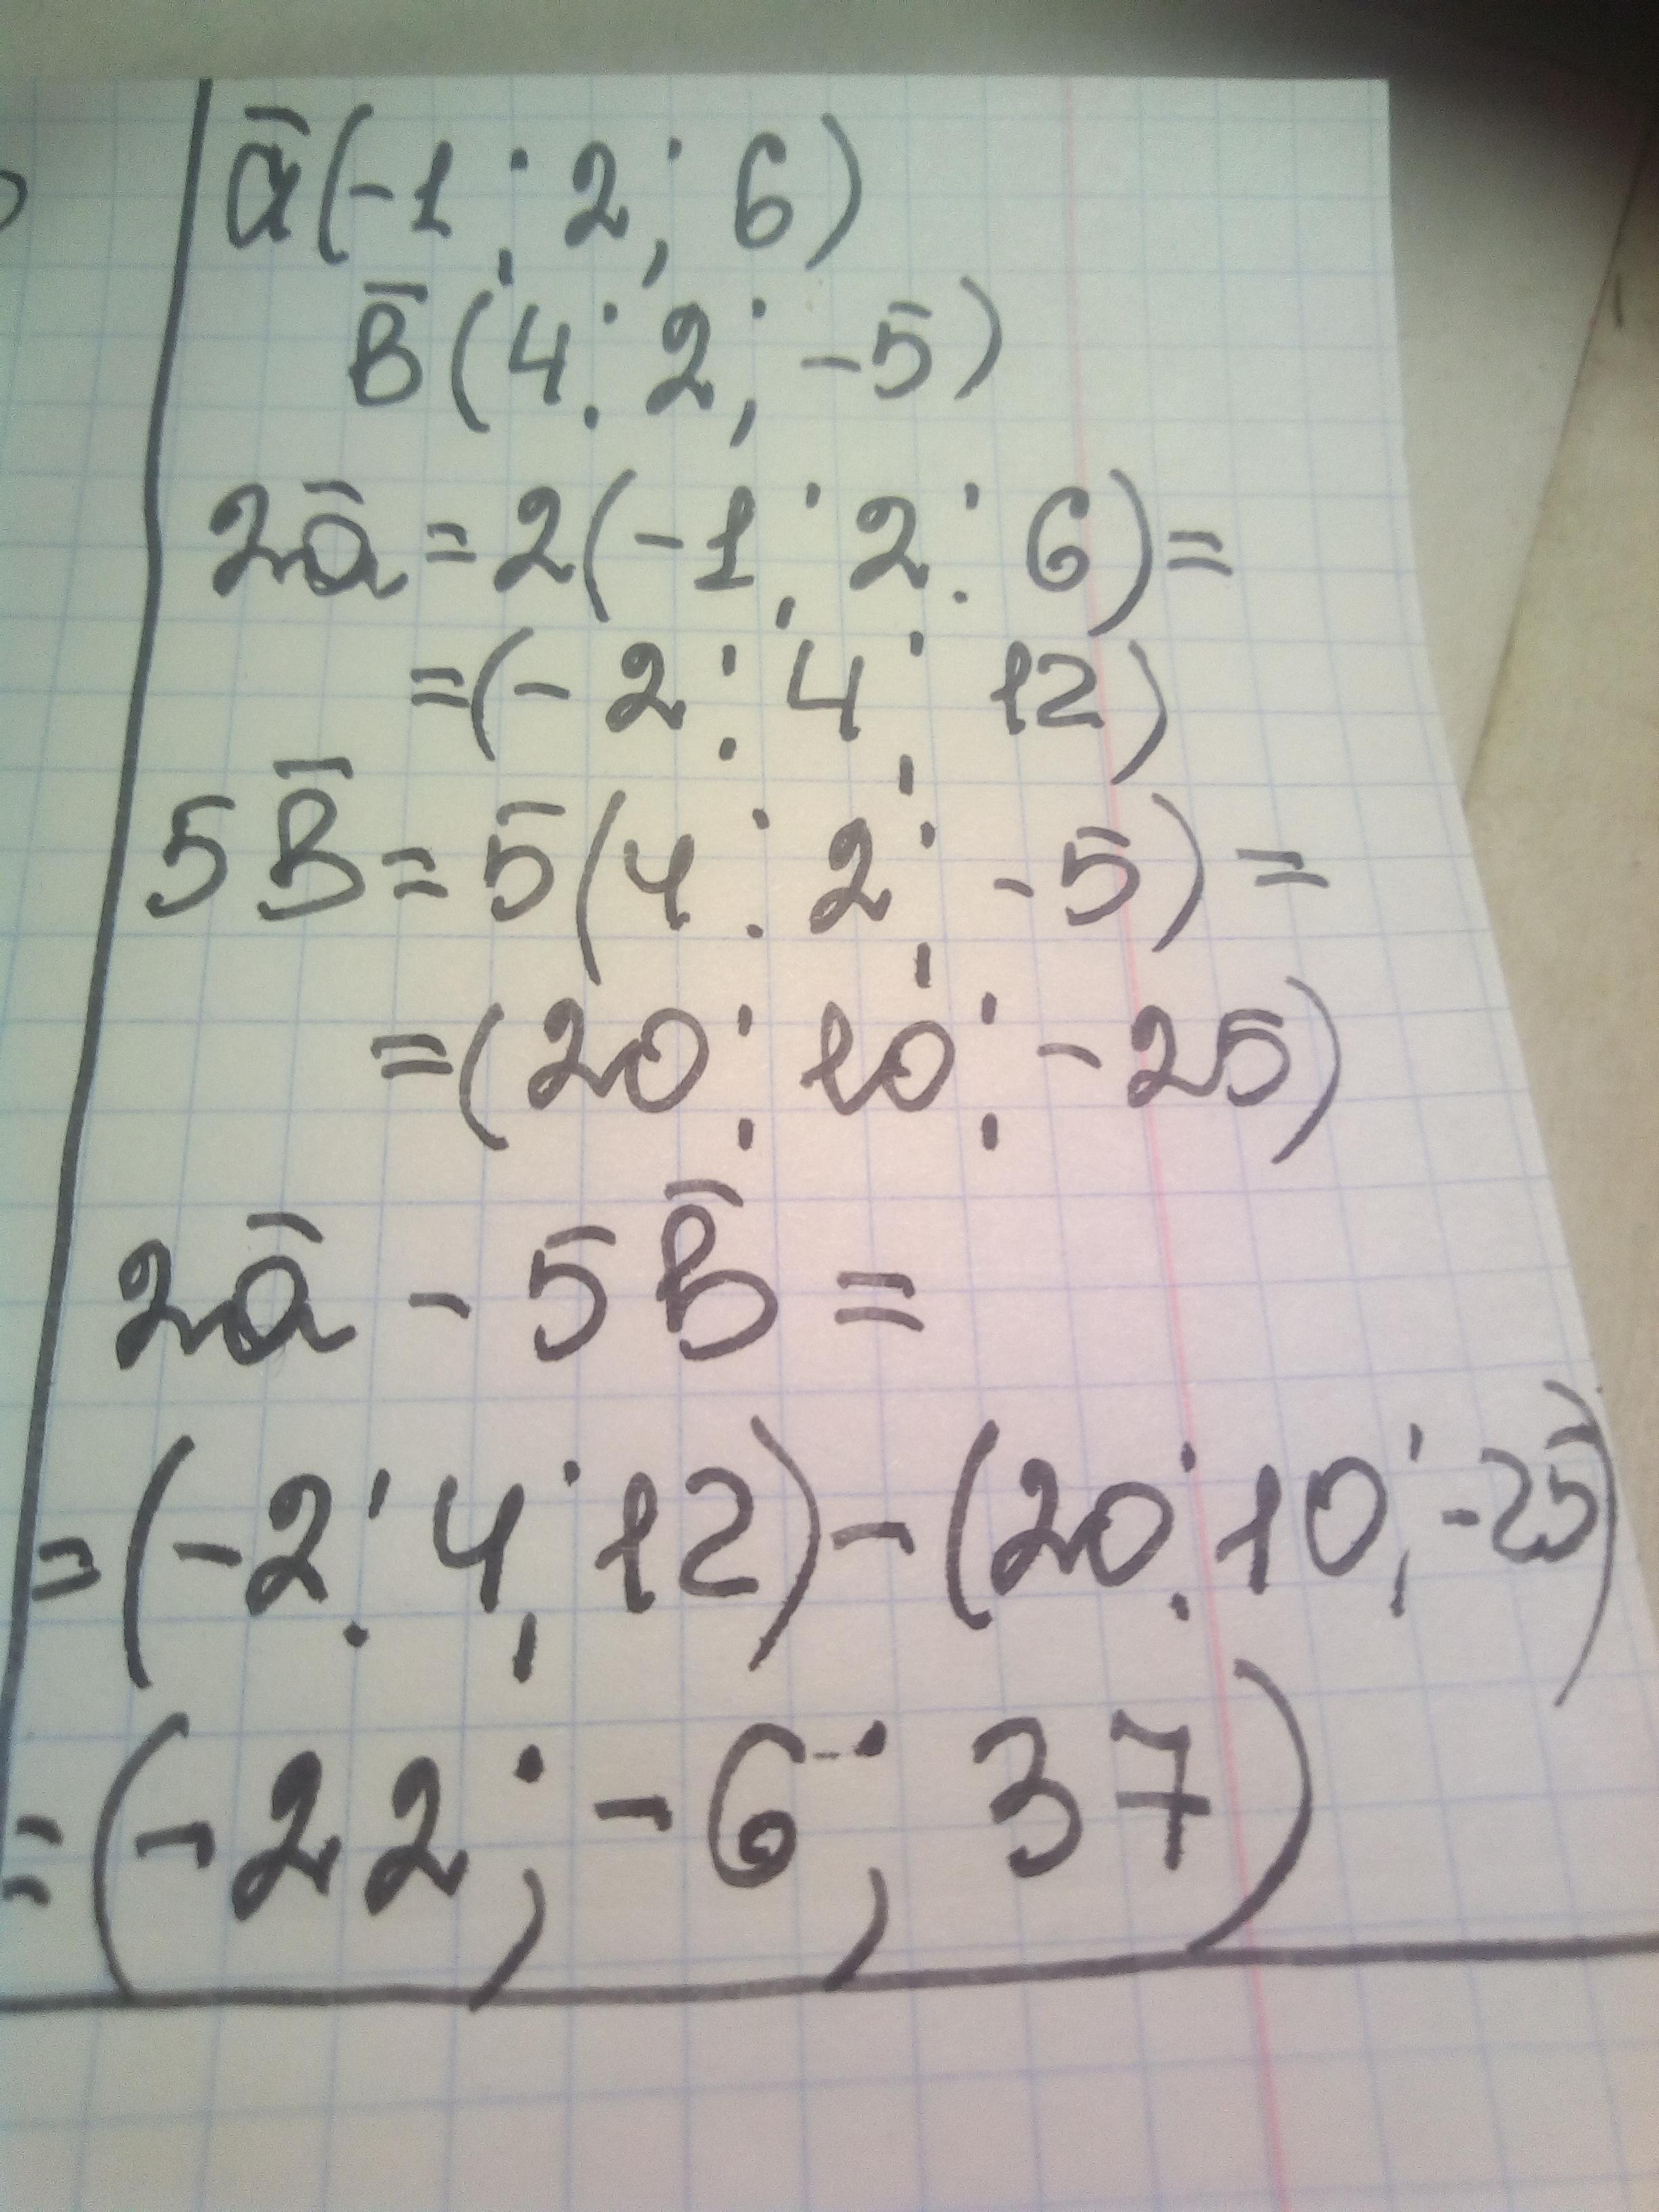 ā(-1; 2; 6)
B̄(4; 2; -5)
2ā = 2(-1; 2; 6) =
= (-2; 4; 12)
5B̄ = 5(4; 2; -5) =
= (20; 10; -25)
2ā - 5B̄ =
= (-2; 4; 12) - (20; 10; -25)
= (-22; -6; 37)